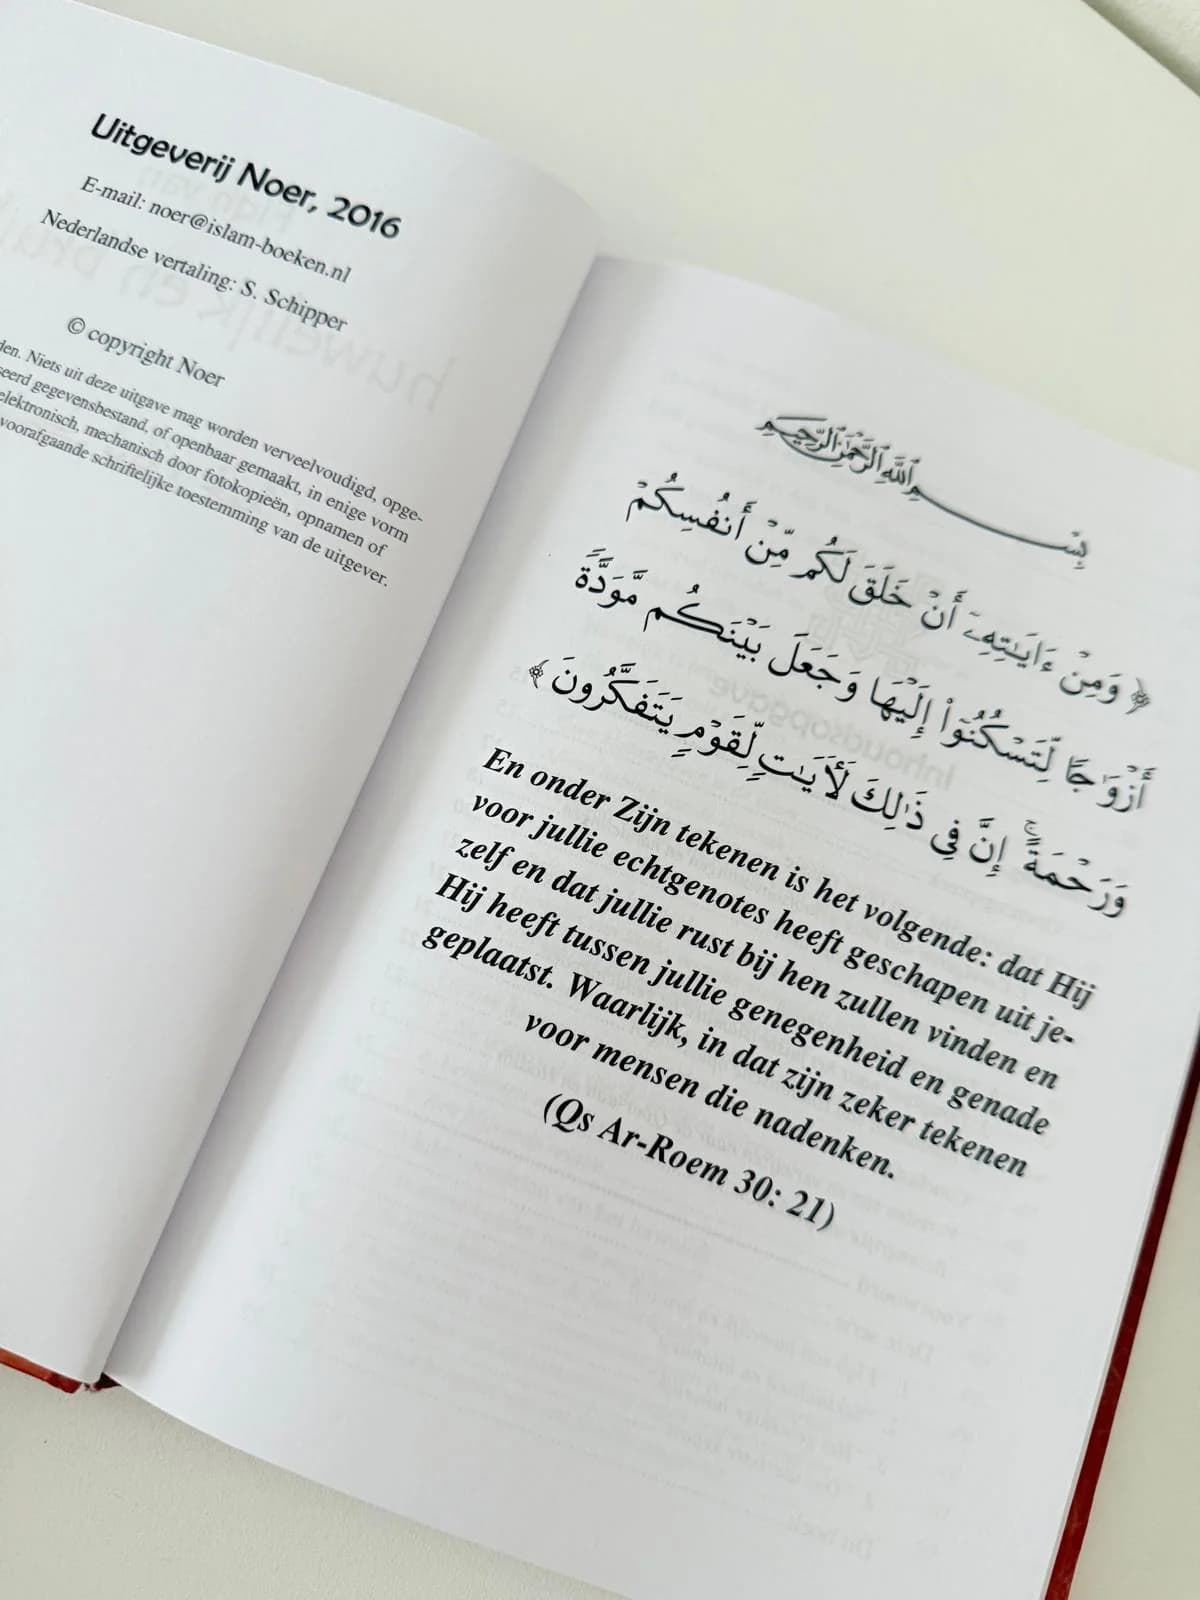 Uitgeverij Noer, 2016
E-mail: noer@islam-boeken.nl
Nederlandse vertaling: S. Schipper
© copyright Noer
Niets uit deze uitgave mag worden verveelvoudigd, opge-
gegevensbestand, of openbaar gemaakt, in enige vorm
elektronisch, mechanisch door fotokopieën, opnamen of
voorafgaande schriftelijke toestemming van de uitgever.
بِسْمِ ٱللَّهِ ٱلرَّحْمَٰنِ ٱلرَّحِيمِ
﴿ وَمِنْ ءَايَٰتِهِۦٓ أَنْ خَلَقَ لَكُم مِّنْ أَنفُسِكُمْ
أَزْوَٰجًا لِّتَسْكُنُوٓا۟ إِلَيْهَا وَجَعَلَ بَيْنَكُم مَّوَدَّةً
وَرَحْمَةً ۚ إِنَّ فِى ذَٰلِكَ لَـَٔايَٰتٍ لِّقَوْمٍ يَتَفَكَّرُونَ ﴾
En onder Zijn tekenen is het volgende: dat Hij
voor jullie echtgenotes heeft geschapen uit je-
zelf en dat jullie rust bij hen zullen vinden en
Hij heeft tussen jullie genegenheid en genade
geplaatst. Waarlijk, in dat zijn zeker tekenen
voor mensen die nadenken.
(Qs Ar-Roem 30: 21)